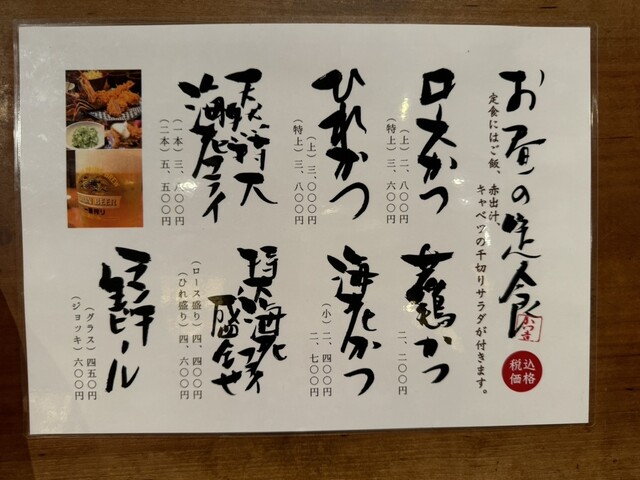 お昼の定食
税込
価格
定食にはご飯、赤出汁、
キャベツの千切りサラダが付きます。
ロースかつ
(上) 二、八〇〇円
(特上) 三、六〇〇円
ひれかつ
(上) 三、〇〇〇円
(特上) 三、八〇〇円
海老フライ
(一本) 三、八〇〇円
(二本) 五、五〇〇円
若鶏かつ
二、二〇〇円
海老かつ
(小) 二、四〇〇円
二、七〇〇円
特大海老フライ
盛合せ
(ロース盛り) 四、四〇〇円
(ひれ盛り) 四、六〇〇円
生ビール
(グラス) 四五〇円
(ジョッキ) 六〇〇円